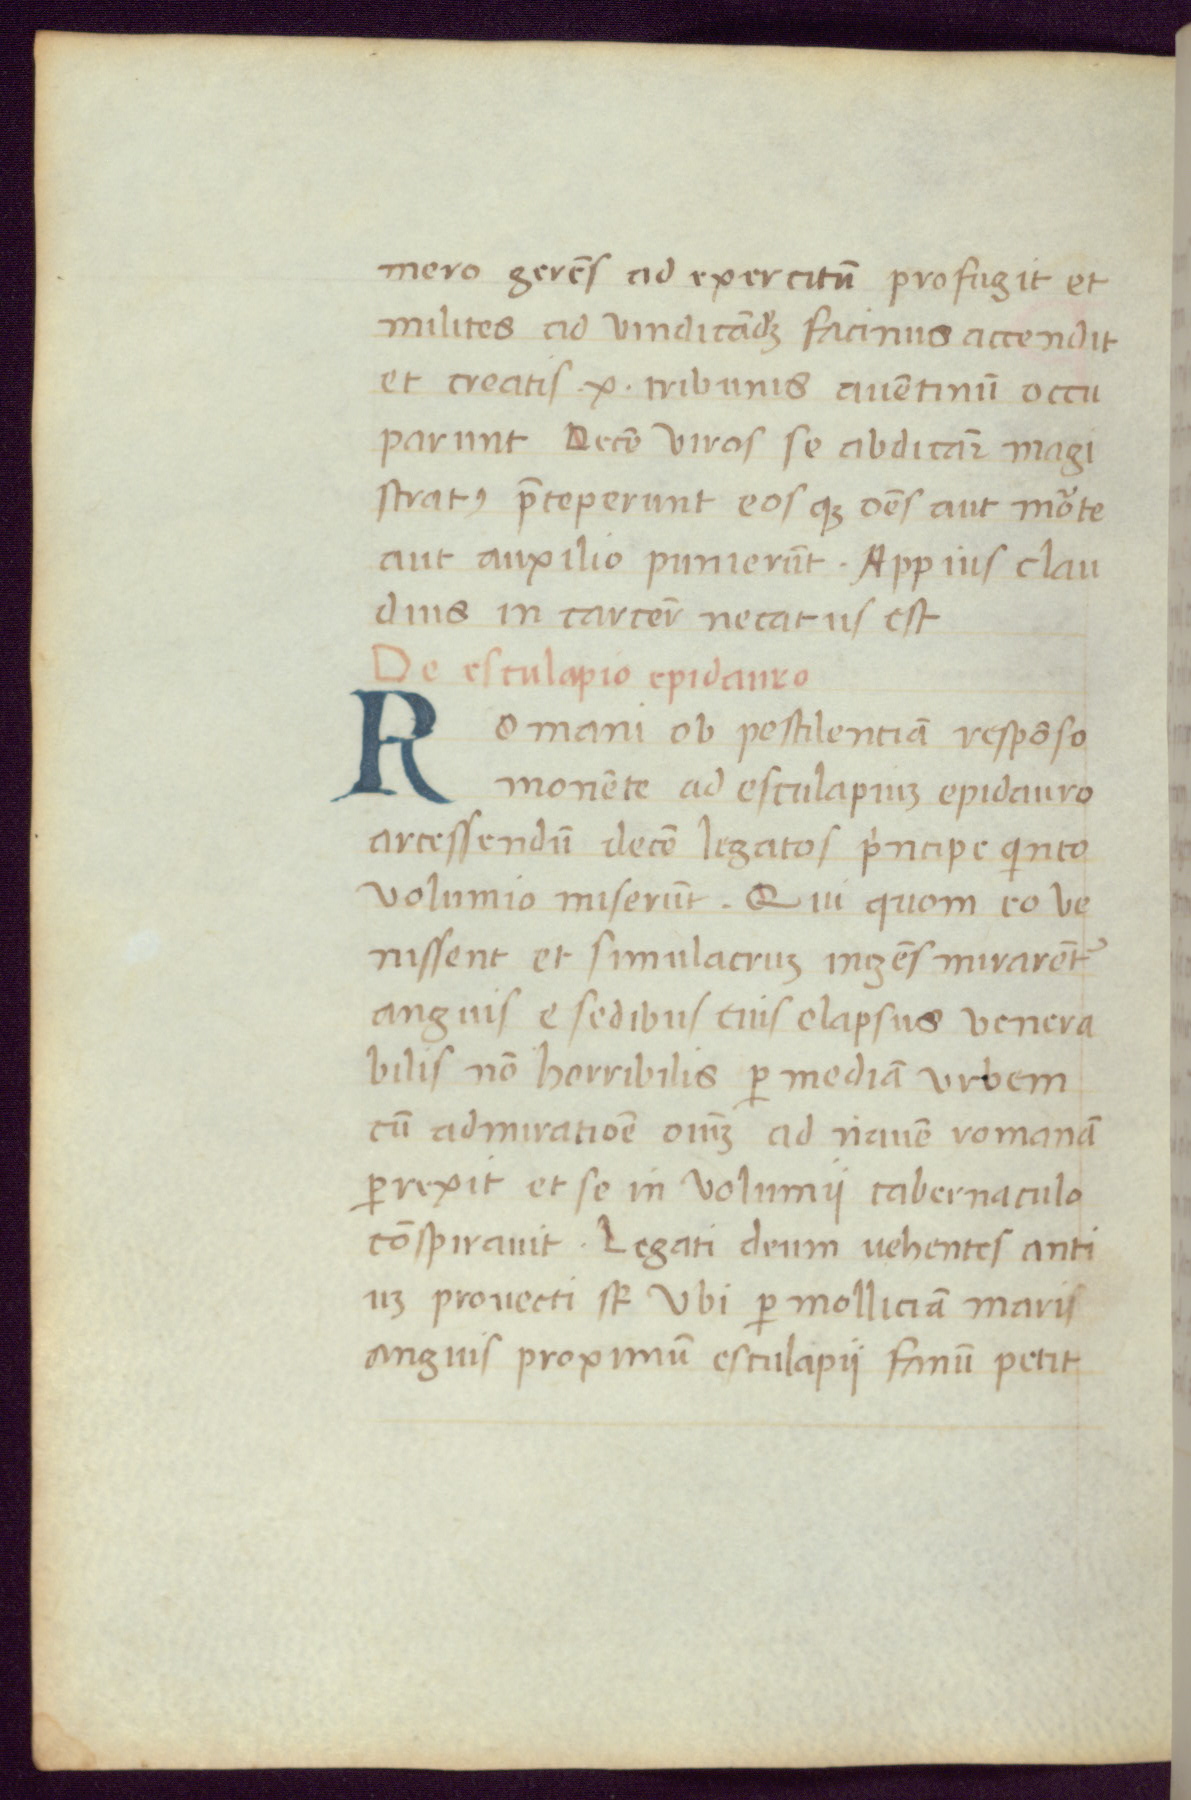 mero gerēs ad exercitū profugit et
milites ad vindicādȝ facinus accendit
et creatis .x. tribunis auētinū occu
parunt Decē viros se abdicaꝛ̄ magi
stratꝰ p̄ceperunt eosqȝ oēs aut mo͛te
aut auxilio punierūt . Appius clau
dius in carcer̄ necatus est
De esculapio epidauro
Romani ob pestilentiā respōso
monēte ad esculapiuȝ epidauro
arcessendū decē legatos pͥncipe qͥnto
volumio miserūt . Qui quom eo ve
nissent et simulacruȝ ingēs mirarēt᷑
anguis e sedibus eius elapsus venera
bilis nō horribilis ꝑ mediā vrbem
cū admiratiōe oīuȝ ad nauē romanā
ꝑrexit et se in volumij tabernaculo
cōspirauit . Legati deum uehentes anti
uȝ prouecti sꝉ Vbi ꝑ molliciā maris
anguis proximū esculapij fanū petit